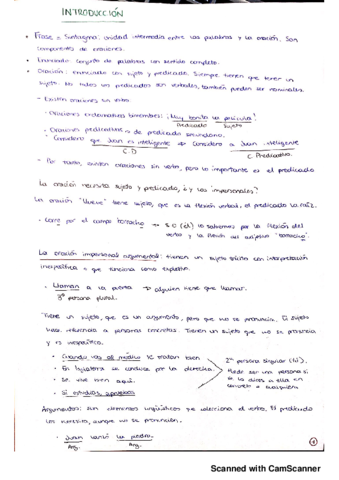 INTRODUCCIÓN
• Frase = Sintagma: unidad intermedia entre las palabras y la oración. Son
componentes de oraciones.
• Enunciado: Conjunto de palabras con sentido completo.
• Oración: enunciado con sujeto y predicado. Siempre tienen que tener un
sujeto. No todos los predicados son verbales, también pueden ser nominales.
- Existen oraciones sin verbo
- Oraciones exclamativas bimembres: ¡Muy bonita la película!
Predicado Sujeto
- Oraciones predicativas de predicado secundario.
Considero que Juan es inteligente → Considero a Juan inteligente
C.D C. Predicativo.
- Por tanto, existen oraciones sin verbo, pero lo importante es el predicado
La oración necesita sujeto y predicado, ¿y las impersonales?
La oración "Llueve" tiene sujeto, que es la flexión verbal, el predicado la raíz.
• Corre por el campo borracho → S.O (él) lo sabemos por la flexión del
verbo y la flexión del adjetivo "borracho".
La oración impersonal argumental: tienen un sujeto tácito con interpretación
inespecífica = que funciona como expletivo.
• Llaman a la puerta → alguien tiene que llamar.
3ª persona plural.
Tiene un sujeto, que es un argumento, pero que no se pronuncia. El sujeto
hace referencia a personas concretas. Tienen un sujeto que no se pronuncia
y es inespecífico.
• Cuando vas al médico te tratan bien
• En Inglaterra se conduce por la derecha.
• Se vive bien aquí.
• Si estudias, apruebas
2ª persona singular (tú).
Puede ser una persona si
se lo dices a ella en
concreto o cualquiera
Argumentos: son elementos lingüísticos que selecciona el verbo. El predicado
los necesita, aunque no se pronuncien.
• Juan lanzó la piedra.
Arg. Arg.
1
Scanned with CamScanner